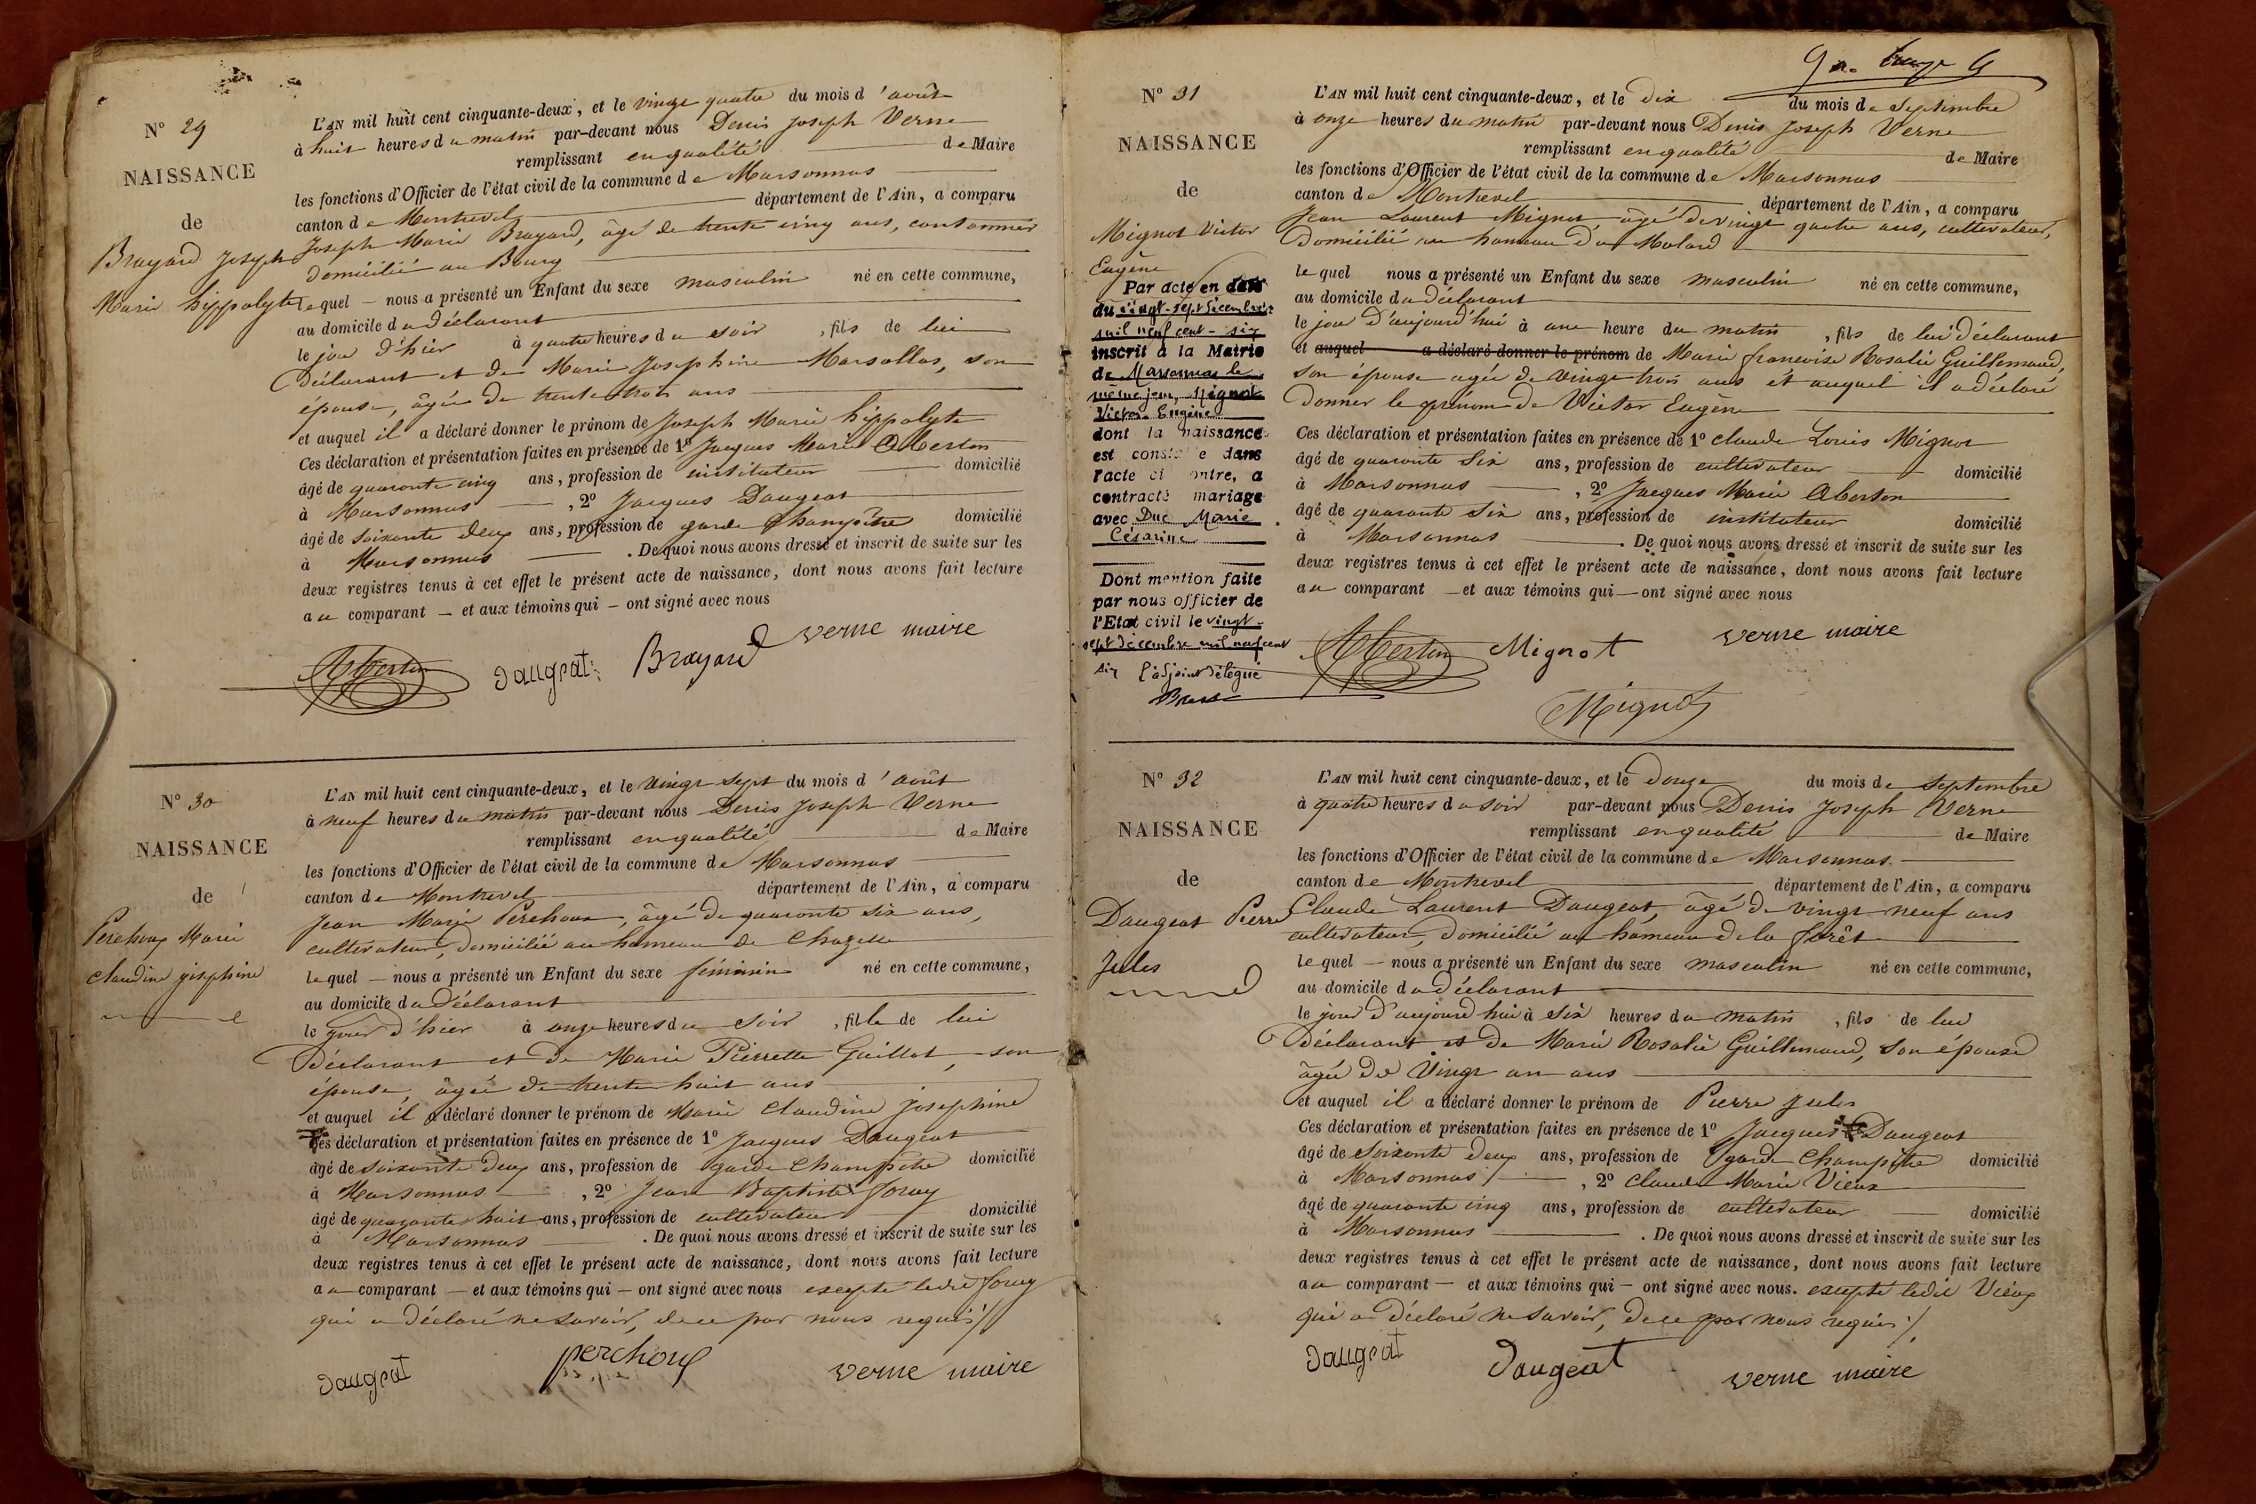 N° 29
NAISSANCE
de
Brayard Joseph
Marie hippolyte
L'AN mil huit cent cinquante-deux, et le vingt quatre du mois d'août
à huit heures du matin par-devant nous Denis Joseph Verne
remplissant en qualité de Maire
les fonctions d'Officier de l'état civil de la commune de Marsonnas
canton de Montrevel département de l'Ain, a comparu
Joseph Marie Brayard, âgé de trente cinq ans, cordonnier
domicilié au Bourg
lequel nous a présenté un Enfant du sexe masculin né en cette commune,
au domicile du déclarant
le jour d'hier à quatre heures du soir, fils de lui
déclarant et de Marie Josephine Marsollas, son
épouse, âgée de trente trois ans
et auquel il a déclaré donner le prénom de Joseph Marie hippolyte
Ces déclaration et présentation faites en présence de 1° Jacques Marie Alberton
âgé de quarante cinq ans, profession de instituteur domicilié
à Marsonnas, 2° Jacques Daugeat
âgé de soixante deux ans, profession de garde champêtre domicilié
à Marsonnas. De quoi nous avons dressé et inscrit de suite sur les
deux registres tenus à cet effet le présent acte de naissance, dont nous avons fait lecture
au comparant et aux témoins qui ont signé avec nous
Alberton daugeat Brayard verne maire
N° 30
NAISSANCE
de
Perchoux Marie
claudine josephine
L'AN mil huit cent cinquante-deux, et le vingt sept du mois d'août
à neuf heures du matin par-devant nous Denis Joseph Verne
remplissant en qualité de Maire
les fonctions d'Officier de l'état civil de la commune de Marsonnas
canton de Montrevel département de l'Ain, a comparu
Jean Marie Perchoux, âgé de quarante six ans,
cultivateur, domicilié au hameau de Chazelle
lequel nous a présenté un Enfant du sexe féminin né en cette commune,
au domicile du déclarant
le jour d'hier à onze heures du soir, fille de lui
déclarant et de Marie Pierrette Guillot, son
épouse, âgée de trente huit ans
et auquel il a déclaré donner le prénom de Marie Claudine Josephine
Ces déclaration et présentation faites en présence de 1° Jacques Daugeat
âgé de soixante deux ans, profession de garde Champêtre domicilié
à Marsonnas, 2° Jean Baptiste foray
âgé de quarante huit ans, profession de cultivateur domicilié
à Marsonnas. De quoi nous avons dressé et inscrit de suite sur les
deux registres tenus à cet effet le présent acte de naissance, dont nous avons fait lecture
au comparant et aux témoins qui ont signé avec nous excepté ledit foray
qui a déclaré ne savoir, de ce par nous requis
daugeat perchoux verne maire
N° 31
NAISSANCE
de
Mignot Victor
Eugène
Par acte en date
du vingt-sept décembre
mil neuf cent-six
inscrit à la Mairie
de Marsonnas le
même jour, Mignot
Victor Eugène
dont la naissance
est constatée dans
l'acte ci contre, a
contracté mariage
avec Duc Marie
Césarine
Dont mention faite
par nous officier de
l'Etat civil le vingt-
sept décembre mil neuf cent
six l'adjoint délégué
L'AN mil huit cent cinquante-deux, et le dix du mois de Septembre
à onze heures du matin par-devant nous Denis Joseph Verne
remplissant en qualité de Maire
les fonctions d'Officier de l'état civil de la commune de Marsonnas
canton de Montrevel département de l'Ain, a comparu
Jean Laurent Mignot âgé de vingt quatre ans, cultivateur,
domicilié au hameau du Molard
lequel nous a présenté un Enfant du sexe masculin né en cette commune,
au domicile du déclarant
le jour d'aujourd'hui à une heure du matin, fils de lui déclarant
et auquel a déclaré donner le prénom de Marie francoise Rosalie Guillemaud,
son épouse agée de vingt trois ans et auquel il a déclaré
donner le prénom de Victor Eugène
Ces déclaration et présentation faites en présence de 1° claude Louis Mignot
âgé de quarante six ans, profession de cultivateur domicilié
à Marsonnas, 2° Jacques Marie Alberton
âgé de quarante six ans, profession de instituteur domicilié
à Marsonnas. De quoi nous avons dressé et inscrit de suite sur les
deux registres tenus à cet effet le présent acte de naissance, dont nous avons fait lecture
au comparant et aux témoins qui ont signé avec nous
Alberton Mignot verne maire
Mignot
N° 32
NAISSANCE
de
Daugeat Pierre
Jules
L'AN mil huit cent cinquante-deux, et le douze du mois de Septembre
à quatre heures du soir par-devant nous Denis Joseph Verne
remplissant en qualité de Maire
les fonctions d'Officier de l'état civil de la commune de Marsonnas
canton de Montrevel département de l'Ain, a comparu
Claude Laurent Daugeat, âgé de vingt neuf ans
cultivateur, domicilié au hameau de la forêt
lequel nous a présenté un Enfant du sexe masculin né en cette commune,
au domicile du déclarant
le jour d'aujourd'hui à six heures du matin, fils de lui
déclarant et de Marie Rosalie Guillemaud, son épouse
âgée de vingt un ans
et auquel il a déclaré donner le prénom de Pierre Jules
Ces déclaration et présentation faites en présence de 1° Jacques Daugeat
âgé de soixante deux ans, profession de garde Champêtre domicilié
à Marsonnas, 2° Claude Marie Vieux
âgé de quarante cinq ans, profession de cultivateur domicilié
à Marsonnas. De quoi nous avons dressé et inscrit de suite sur les
deux registres tenus à cet effet le présent acte de naissance, dont nous avons fait lecture
au comparant et aux témoins qui ont signé avec nous. excepté ledit Vieux
qui a déclaré ne savoir, de ce par nous requis
daugeat Daugeat verne maire